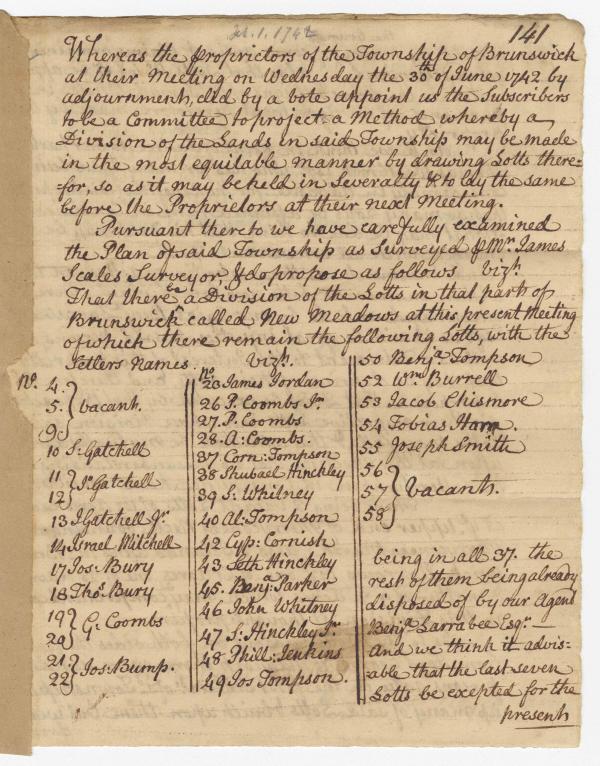 141
Whereas the Proprietors of the Township of Brunswick
at their Meeting on Wednesday the 30th of June 1742 by
adjournment, did by a vote appoint us the Subscribers
to be a Committee to project a Method whereby a
Division of the Lands in said Township may be made
in the most equitable manner by drawing Lotts there=
=for, so as it may be held in Severalty & to lay the same
before the Proprietors at their next Meeting.
Pursuant thereto we have carefully examined
the Plan of said Township as Surveyed p Mr. James
Scales Surveyor, & do propose as follows Vizt.
That there be a Division of the Lotts in that part of
Brunswick called New Meadows at this present Meeting
of which there remain the following Lotts, with the
Setlers Names. Vizt.
No.
4.
5. } vacant.
9
10 S: Gatchell
11 } Jn: Gatchell
12
13 J Gatchell Jr.
14 Israel Mitchell
17 Jos: Bury
18 Thos. Bury
19 } G: Coombs
20
21 } Jos: Bump.
22
No.
23 James Jordan
26 P. Coombs Jr.
27. P. Coombs
28. A: Coombs.
37 Corn: Tompson
38 Shubael Hinckley
39 S: Whitney
40 Al: Tompson
42 Cyp: Cornish
43 Seth Hinckley
45. Benja: Parker
46 John Whitney
47 S: Hinckley Jr.
48 Phill: Jenkins
49 Jos Tompson.
50 Benja. Tompson
52 Wm Burrell
53 Jacob Chismore
54 Tobias Ham.
55 Joseph Smith
56
57 } Vacant.
58
being in all 37. the
rest of them being already
disposed of by our Agent
Benja. Larrabee Esqr.
And we think it advis=
able that the last seven
Lotts be excepted for the
present